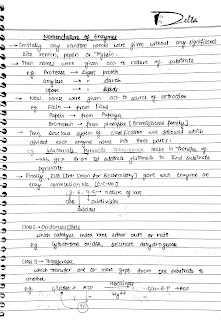 Delta
Nomenclature of Enzymes
→ Initially any random names were given without any significant
like rennin, pepsin or Trypsin.
→ Then names were given acc to nature of substrate
e.g. Protease → digest protein
amylase → " starch
lipase → " lipids
→ Now, names were given acc to source of extraction
e.g. Ficin → from Ficus
Papain → from Papaya
Bromelain → from pineapple (Bromeliaceae family)
→ Then, various system of classification was followed which
divided each enzyme names into three parts:
e.g. Glutamate Pyruvate Transaminase make in transfer of
-NH2 grp from 1st substrate glutamate to 2nd substrate
pyruvate
→ Finally IUB (Int Union for Biochemistry) gave each enzyme an
enzy commission no (E.C. no)
nature of rxn
subdivides
Class I → Oxidoreductases
which catalyse redox rxns either oxidn or redn
e.g. Cytochrome oxidase, succinate dehydrogenase
Class II → Transferases
which transfer one or more grps from one substrate to
another
e.g. Glucose + ATP Hexokinase Mg++ G-6-P + ADP